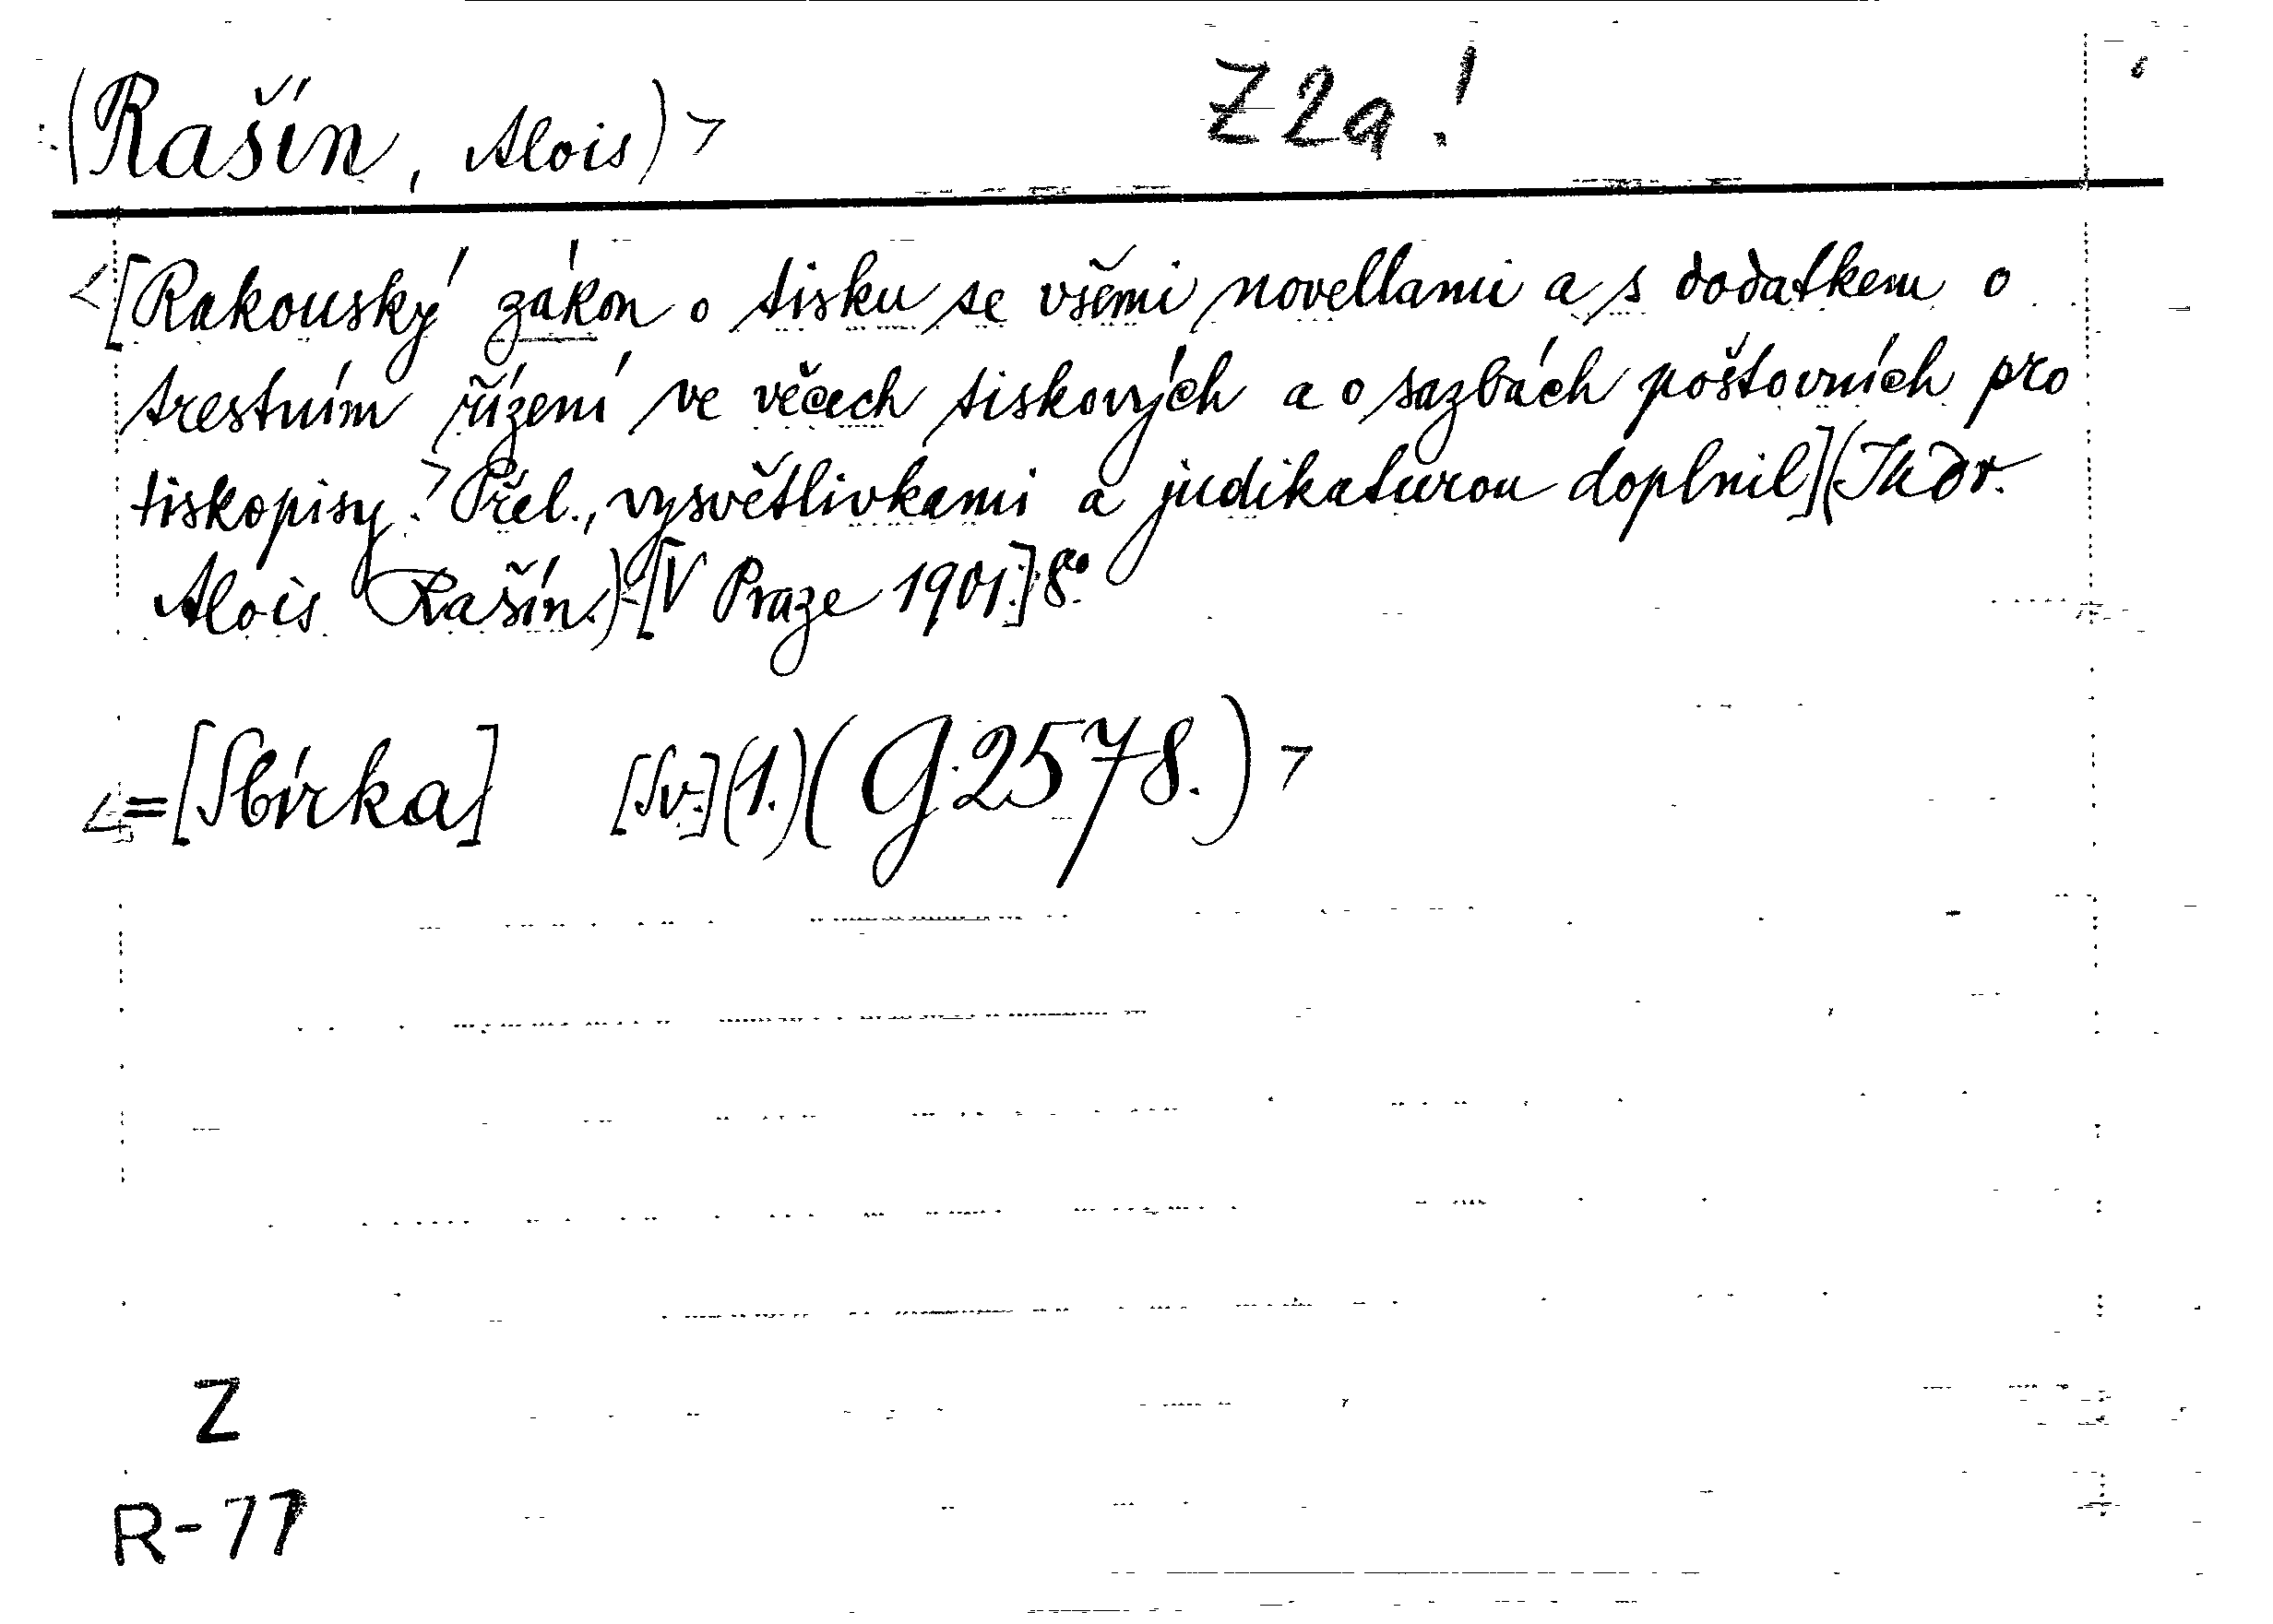 (Rašín, Alois)> Z2a!
<[Rakouský zákon o tisku se všemi novellami a s dodatkem o
trestním řízení ve věcech tiskových a o sazbách poštovních pro
tiskopisy.> Přel., vysvětlivkami a judikaturou doplnil](JUdr.
Alois Rašín.)-[V Praze 1901.] 8°
<=[Sbírka] [Sv.](1.)(G.2578.)>
Z
R-77